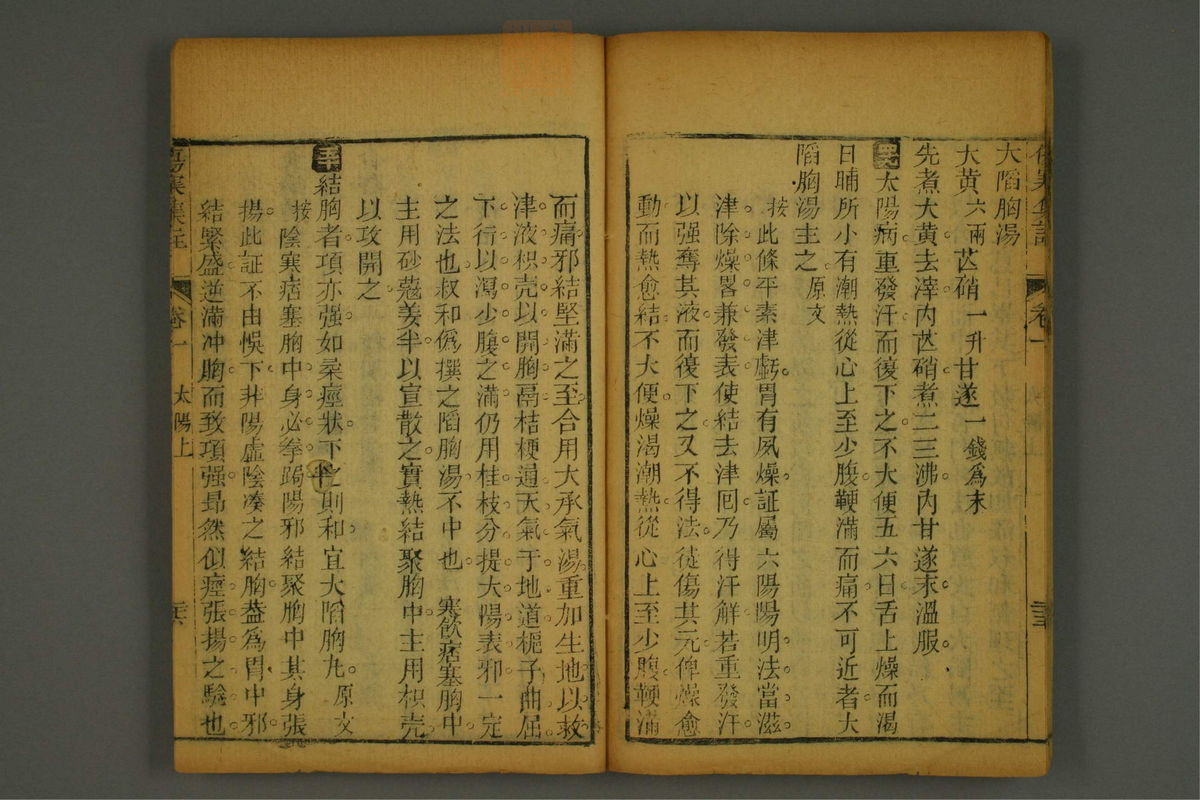 傷寒集註 卷一 太陽上 三五
大䧟胸湯
大黄六兩 芒硝一升 甘遂一錢爲末
先煮大黄去滓内芒硝煮二三沸内甘遂末溫服
四九 太陽病重發汗而復下之不大便五六日舌上燥而渴
日晡所小有潮熱從心上至少腹鞕滿而痛不可近者大
䧟胸湯主之 原文
按此條平素津虧胃有夙燥証屬六陽陽明法當滋
津除燥畧兼發表使結去津囘乃得汗解若重發汗
以强奪其液而復下之又不得法徒傷其元俾燥愈
動而熱愈結不大便燥渴潮熱從心上至少腹鞕滿
而痛邪結堅滿之至合用大承氣湯重加生地以救
津液枳壳以開胸膈桔梗通天氣于地道梔子曲屈
下行以瀉少腹之滿仍用桂枝分提太陽表邪一定
之法也叔和僞撰之䧟胸湯不中也 寒飲痞塞胸中
主用砂蔻姜半以宣散之實熱結聚胸中主用枳壳
以攻開之
五十 結胸者項亦强如柔痙狀下之則和宜大䧟胸丸 原文
按陰寒痞塞胸中身必拳跼陽邪結聚胸中其身張
揚此証不由悞下非陽虛陰凑之結胸葢爲胃中邪
結緊盛逆滿冲胸而致項强昻然似痙張揚之驗也
傷寒集註 卷一 太陽上 三六